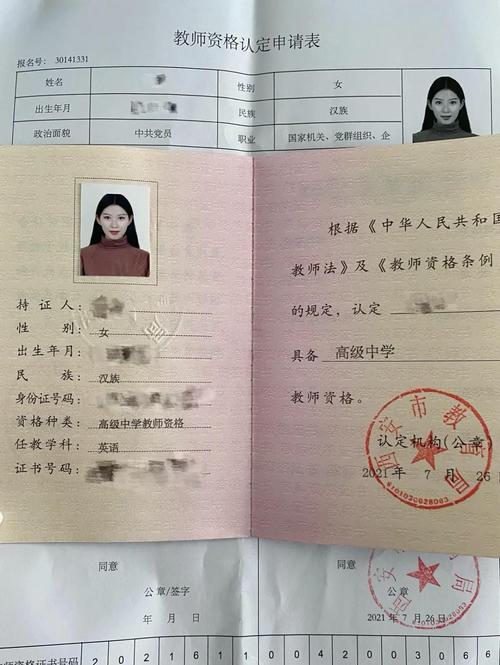 教师资格认定申请表
报名号: 30141331
姓名 性别 女
出生年月 民族 汉族
政治面貌 中共党员 职业 国家机关、党群组织、企
持证人:
性别: 女
出生年月:
民族: 汉族
身份证号码:
资格种类: 高级中学教师资格
任教学科: 英语
证书号码:
根据《中华人民共和国
教师法》及《教师资格条例
的规定,认定
具备 高级中学
教师资格。
西安市教育局
认定机构(公章
2021年 7 月 26
6101020028063
同意 同意
公章/签字 公章
年 月 日 2021年 7 月 26日
西安 局
资格证书号码 2 0 2 1 6 1 1 0 0 4 2 0 0 0